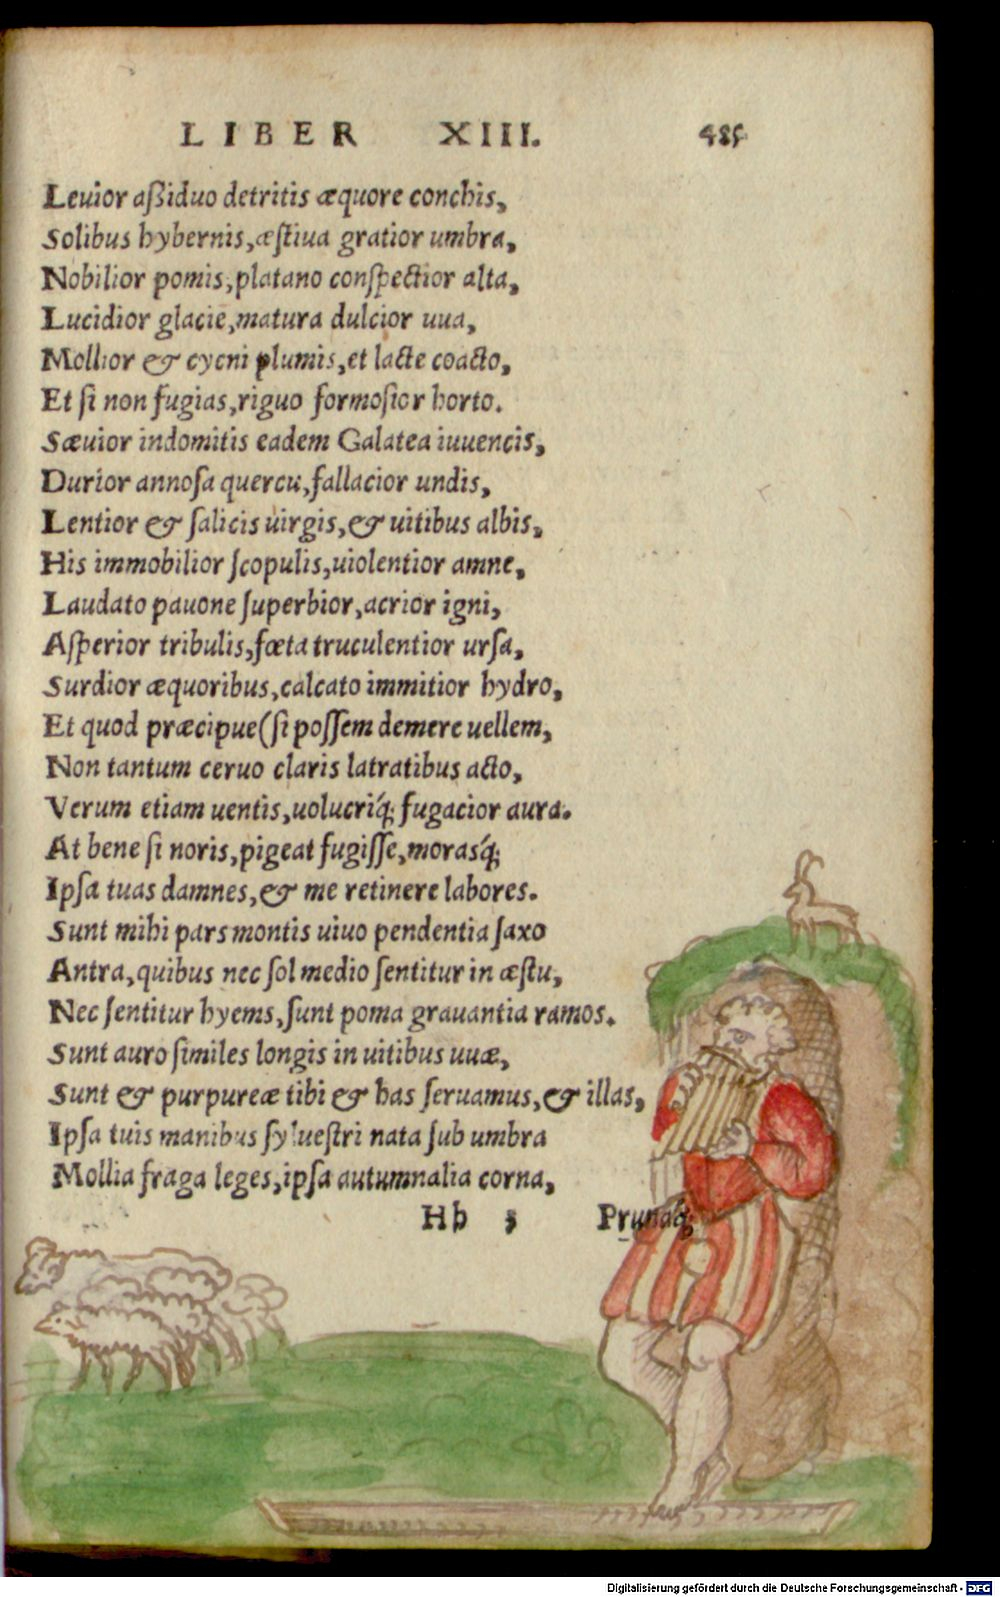 LIBER XIII. 485
Leuior aßiduo detritis æquore conchis,
Solibus hybernis, æstiua gratior umbra,
Nobilior pomis, platano conspectior alta,
Lucidior glacie, matura dulcior uua,
Mollior & cycni plumis, et lacte coacto,
Et si non fugias, riguo formosior horto.
Sæuior indomitis eadem Galatea iuuencis,
Durior annosa quercu, fallacior undis,
Lentior & salicis uirgis, & uitibus albis,
His immobilior scopulis, uiolentior amne,
Laudato pauone superbior, acrior igni,
Asperior tribulis, fœta truculentior ursa,
Surdior æquoribus, calcato immitior hydro,
Et quod præcipue (si possem demere uellem,
Non tantum ceruo claris latratibus acto,
Verum etiam uentis, uolucriq́; fugacior aura.
At bene si noris, pigeat fugisse, morasq́;
Ipsa tuas damnes, & me retinere labores.
Sunt mihi pars montis uiuo pendentia saxo
Antra, quibus nec sol medio sentitur in æstu,
Nec sentitur hyems, sunt poma grauantia ramos.
Sunt auro similes longis in uitibus uuæ,
Sunt & purpureæ tibi & has seruamus, & illas,
Ipsa tuis manibus syluestri nata sub umbra
Mollia fraga leges, ipsa autumnalia corna,
Hh 3 Prunaq́;
Digitalisierung gefördert durch die Deutsche Forschungsgemeinschaft - DFG